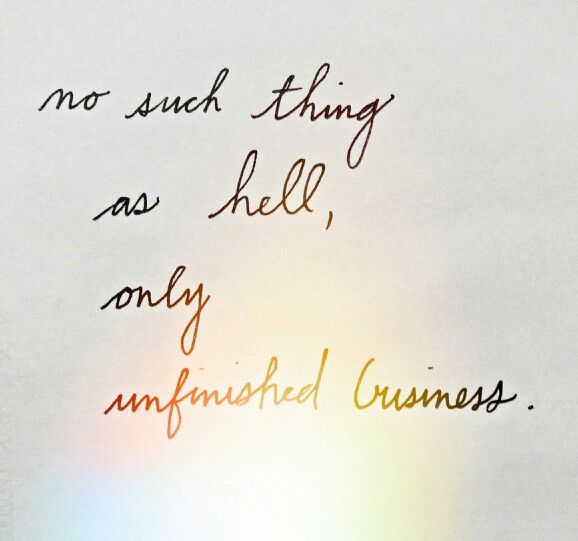 no such thing
as hell,
only
unfinished business.